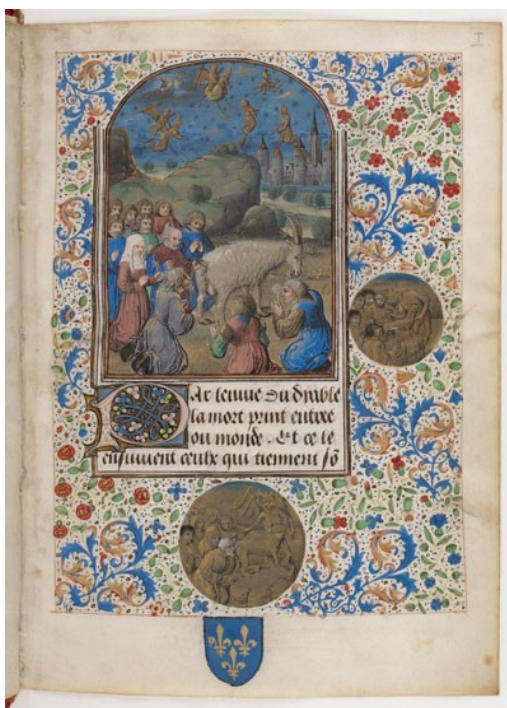 I
Ar lenuie du dyable
la mort print entree
ou monde. Et ce le
ensuiuent ceulx qui tiennent sō